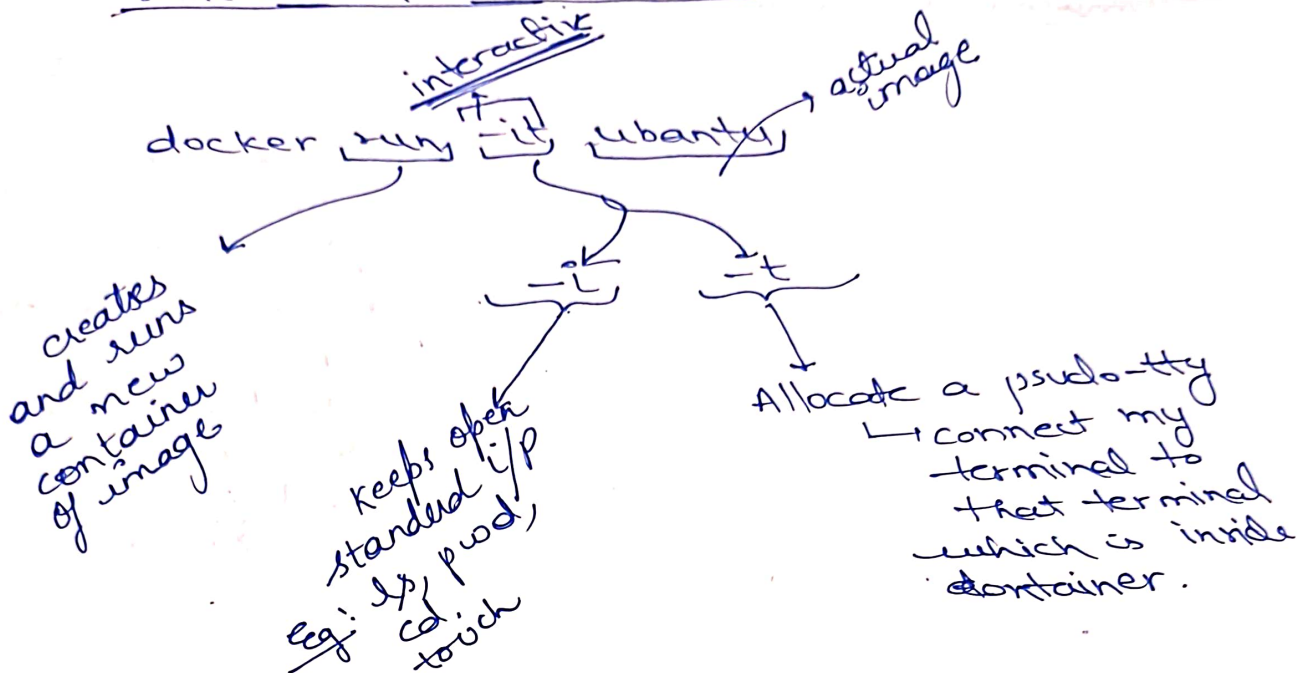 interactive
actual
image
docker run -it ubantu
-i -t
creates
and runs
a new
container
of image
keeps open
standard i/p
Eg: ls, pwd,
cd.
touch
Allocate a psudo-tty
connect my
terminal to
that terminal
which is inside
container.